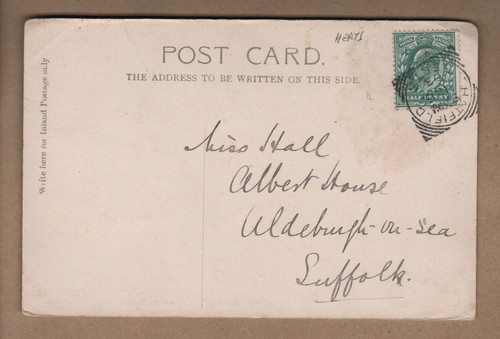 HERTS
POST CARD.
THE ADDRESS TO BE WRITTEN ON THIS SIDE.
HALF PENNY
HATFIELD
Write here for Inland Postage only
Miss Hall
Albert House
Aldeburgh-on-Sea
Suffolk.